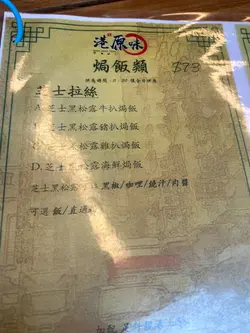 港原味
焗飯類 $73
芝士拉絲
A.芝士黑松露牛扒焗飯
芝士黑松露豬扒焗飯
黑松露雞扒焗飯
D.芝士黑松露海鮮焗飯
芝士黑松 黑椒/咖哩/燒汁/肉醬
可選 飯/直通